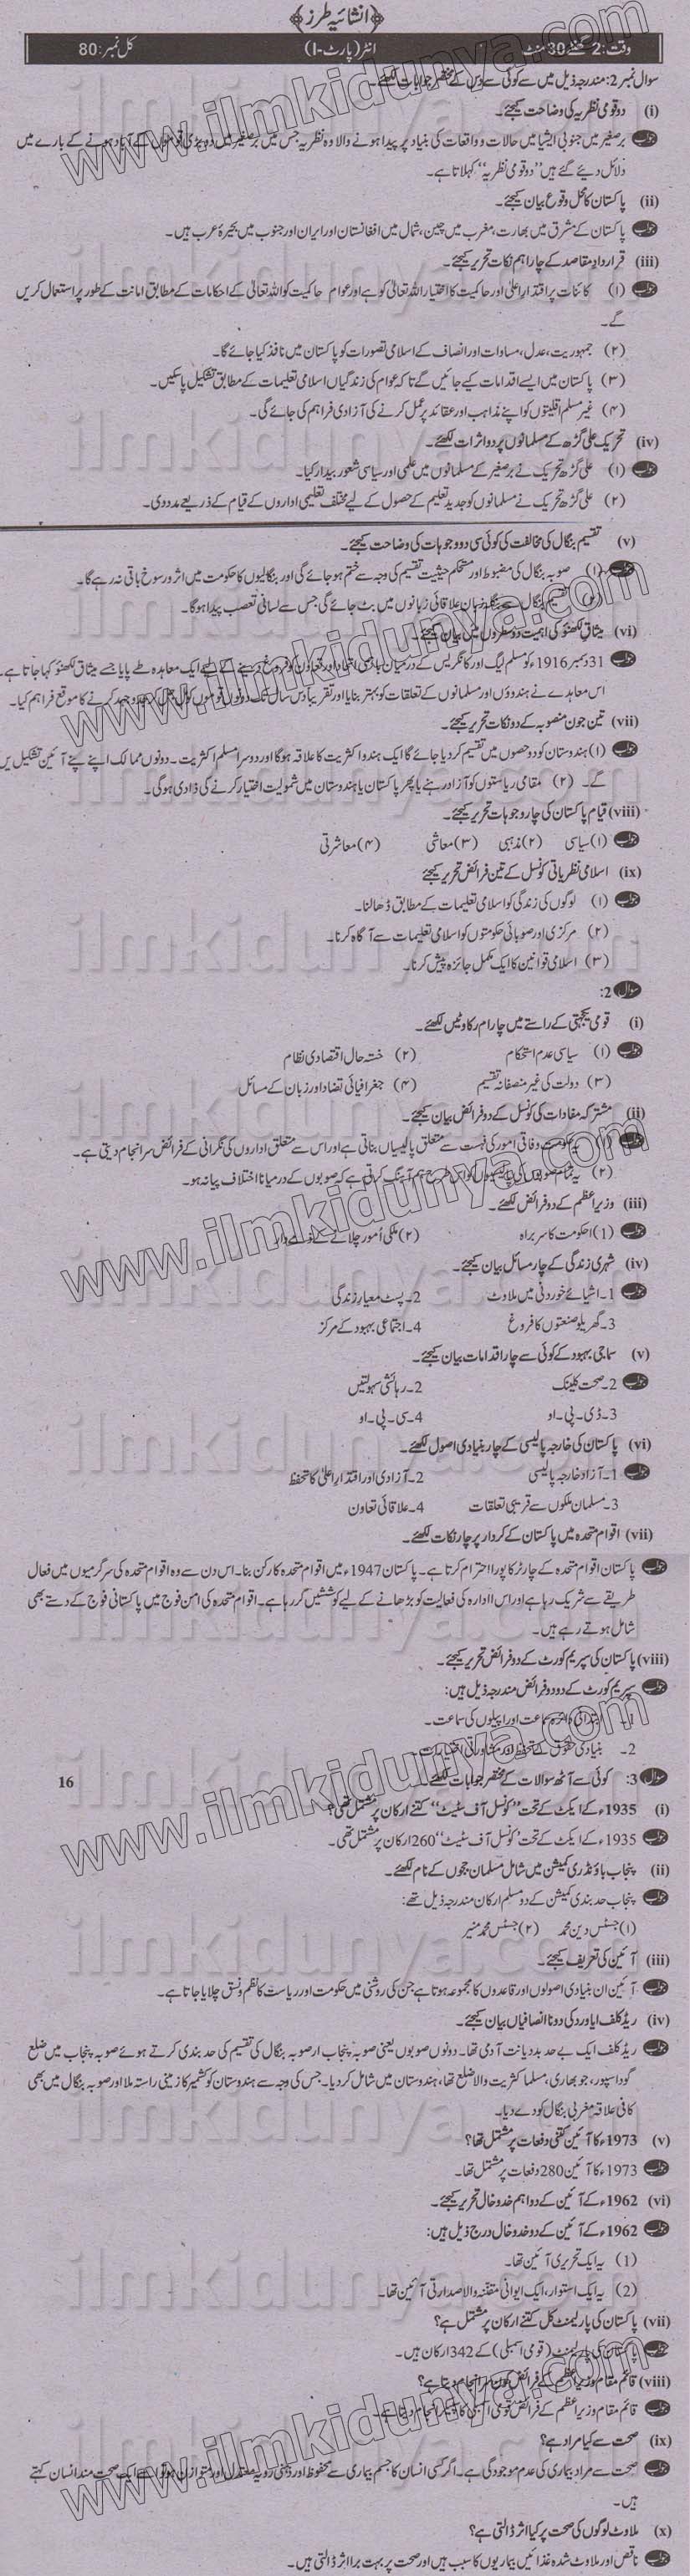 ﴿انشائیہ طرز﴾
وقت: 2 گھنٹے 30 منٹ انٹر (پارٹ-I) کل نمبر: 80
سوال نمبر 2: مندرجہ ذیل میں سے کوئی سے کے مختصر جوابات لکھئے۔
(i) دو قومی نظریہ کی وضاحت کیجئے۔
جواب برصغیر میں جنوبی ایشیا میں حالات و واقعات کی بنیاد پر پیدا ہونے والا وہ نظریہ جس میں برصغیر میں دو بڑی قوموں کے آباد ہونے کے بارے میں
دلائل دیئے گئے ہیں "دو قومی نظریہ" کہلاتا ہے۔
(ii) پاکستان کا محل وقوع بیان کیجئے۔
جواب پاکستان کے مشرق میں بھارت، مغرب میں چین، شمال میں افغانستان اور ایران اور جنوب میں بحیرۂ عرب ہیں۔
(iii) قرارداد مقاصد کے چار اہم نکات تحریر کیجئے۔
جواب (۱) کائنات پر اقتدار اعلیٰ اور حاکمیت کا اختیار اللہ تعالیٰ کو ہے اور عوام حاکمیت کو اللہ تعالیٰ کے احکامات کے مطابق امانت کے طور پر استعمال کریں
گے۔
(۲) جمہوریت، عدل، مساوات اور انصاف کے اسلامی تصورات کو پاکستان میں نافذ کیا جائے گا۔
(۳) پاکستان میں ایسے اقدامات کیے جائیں گے تاکہ عوام کی زندگیاں اسلامی تعلیمات کے مطابق تشکیل پا سکیں۔
(۴) غیر مسلم اقلیتوں کو اپنے مذاہب اور عقائد پر عمل کرنے کی آزادی فراہم کی جائے گی۔
(iv) تحریک علی گڑھ کے مسلمانوں پر دو اثرات لکھئے۔
جواب (۱) علی گڑھ تحریک نے برصغیر کے مسلمانوں میں علمی اور سیاسی شعور بیدار کیا۔
(۲) علی گڑھ تحریک نے مسلمانوں کو جدید تعلیم کے حصول کے لیے مختلف تعلیمی اداروں کے قیام کے ذریعے مدد دی۔
(v) تقسیم بنگال کی مخالفت کی کوئی سی دو وجوہات کی وضاحت کیجئے۔
جواب (۱) صوبہ بنگال کی مضبوط اور مستحکم حیثیت تقسیم کی وجہ سے ختم ہو جائے گی اور بنگالیوں کا حکومت میں اثر و رسوخ باقی نہ رہے گا۔
تقسیم بنگال سے بنگلہ زبان علاقائی زبانوں میں بٹ جائے گی جس سے لسانی تعصب پیدا ہوگا۔
(vi) میثاق لکھنؤ کی اہمیت دو سطروں میں بیان کیجئے۔
جواب 31 دسمبر 1916ء کو مسلم لیگ اور کانگریس کے درمیان باہمی اتحاد اور تعاون کو فروغ دینے کے لیے ایک معاہدہ طے پایا جسے میثاق لکھنؤ کہا جاتا ہے۔
اس معاہدے نے ہندوؤں اور مسلمانوں کے تعلقات کو بہتر بنایا اور تقریباً دس سال تک دونوں قوموں کو مل جل کر جدوجہد کرنے کا موقع فراہم کیا۔
(vii) تین جون منصوبہ کے دو نکات تحریر کیجئے۔
جواب (۱) ہندوستان کو دو حصوں میں تقسیم کر دیا جائے گا ایک ہندو اکثریت کا علاقہ ہوگا اور دوسرا مسلم اکثریت۔ دونوں ممالک اپنے اپنے آئین تشکیل دیں
گے۔ (۲) مقامی ریاستوں کو آزاد رہنے یا پھر پاکستان یا ہندوستان میں شمولیت اختیار کرنے کی آزادی ہوگی۔
(viii) قیام پاکستان کی چار وجوہات تحریر کیجئے۔
جواب (۱) سیاسی (۲) مذہبی (۳) معاشی (۴) معاشرتی
(ix) اسلامی نظریاتی کونسل کے تین فرائض تحریر کیجئے
جواب (۱) لوگوں کی زندگی کو اسلامی تعلیمات کے مطابق ڈھالنا۔
(۲) مرکزی اور صوبائی حکومتوں کو اسلامی تعلیمات سے آگاہ کرنا۔
(۳) اسلامی قوانین کا ایک مکمل جائزہ پیش کرنا۔
سوال 2:
(i) قومی یکجہتی کے راستے میں چار رکاوٹیں لکھئے۔
جواب (۱) سیاسی عدم استحکام (۲) خستہ حال اقتصادی نظام
(۳) دولت کی غیر منصفانہ تقسیم (۴) جغرافیائی تضاد اور زبان کے مسائل
(ii) مشترکہ مفادات کی کونسل کے دو فرائض بیان کیجئے۔
جواب وفاقی امور کی فہرست سے متعلق پالیسیاں بناتی ہے اور اس سے متعلق اداروں کی نگرانی کے فرائض سرانجام دیتی ہے۔
(۲) یہ تمام صوبوں کی پالیسیوں کو اس طرح ہم آہنگ کرتی ہے کہ صوبوں کے درمیان اختلاف پیدا نہ ہو۔
(iii) وزیراعظم کے دو فرائض لکھئے۔
جواب (۱) حکومت کا سربراہ (۲) ملکی اُمور چلانے کے ذمے دار
(iv) شہری زندگی کے چار مسائل بیان کیجئے۔
جواب 1۔ اشیائے خوردنی میں ملاوٹ 2۔ پست معیار زندگی
3۔ گھریلو صنعتوں کا فروغ 4۔ اجتماعی بہبود کے مرکز
(v) سماجی بہبود کے کوئی سے چار اقدامات بیان کیجئے۔
جواب 2۔ صحت کلینک 2۔ رہائشی سہولتیں
3۔ ڈی۔ پی۔ او 4۔ سی۔ پی۔ او
(vi) پاکستان کی خارجہ پالیسی کے چار بنیادی اصول لکھئے۔
جواب 1۔ آزاد خارجہ پالیسی 2۔ آزادی اور اقتدار اعلیٰ کا تحفظ
3۔ مسلمان ملکوں سے قریبی تعلقات 4۔ علاقائی تعاون
(vii) اقوام متحدہ میں پاکستان کے کردار پر چار نکات لکھئے۔
جواب پاکستان اقوام متحدہ کے چارٹر کا پورا احترام کرتا ہے۔ پاکستان 1947ء میں اقوام متحدہ کا رکن بنا۔ اس دن سے وہ اقوام متحدہ کی سرگرمیوں میں فعال
طریقے سے شریک رہا ہے اور اس ادارہ کی فعالیت کو بڑھانے کے لیے کوششیں کر رہا ہے۔ اقوام متحدہ کی امن فوج میں پاکستانی فوج کے دستے بھی
شامل ہوتے رہے ہیں۔
(viii) پاکستان کی سپریم کورٹ کے دو فرائض تحریر کیجئے۔
جواب سپریم کورٹ کے دو دو فرائض مندرجہ ذیل ہیں:
1۔ ابتدائی دائرہ سماعت اور اپیلوں کی سماعت۔
2۔ بنیادی حقوق کے تحفظ اور مشاورتی اختیارات۔
سوال 3: کوئی سے آٹھ سوالات کے مختصر جوابات لکھئے۔ 16
(i) 1935ء کے ایکٹ کے تحت "کونسل آف سٹیٹ" کتنے ارکان پر مشتمل تھی؟
جواب 1935ء کے ایکٹ کے تحت "کونسل آف سٹیٹ" 260 ارکان پر مشتمل تھی۔
(ii) پنجاب باؤنڈری کمیشن میں شامل مسلمان ججوں کے نام لکھئے۔
جواب پنجاب حد بندی کمیشن کے دو مسلم ارکان مندرجہ ذیل تھے:
(۱) جسٹس دین محمد (۲) جسٹس محمد منیر
(iii) آئین کی تعریف کیجئے۔
جواب آئین ان بنیادی اصولوں اور قاعدوں کا مجموعہ ہوتا ہے جن کی روشنی میں حکومت اور ریاست کا نظم و نسق چلایا جاتا ہے۔
(iv) ریڈکلف ایوارڈ کی دو ناانصافیاں بیان کیجئے۔
جواب ریڈکلف ایک بے حد بددیانت آدمی تھا۔ دونوں صوبوں یعنی صوبہ پنجاب ارصوبہ بنگال کی تقسیم کی حد بندی کرتے ہوئے صوبہ پنجاب میں ضلع
گوداسپور، جو بھاری، مسلما کثریت والا ضلع تھا، ہندوستان میں شامل کر دیا۔ جس کی وجہ سے ہندوستان کو کشمیر کا زمینی راستہ ملا اور صوبہ بنگال میں بھی
کافی علاقہ مغربی بنگال کو دے دیا۔
(v) 1973ء کا آئین کتنی دفعات پر مشتمل تھا؟
جواب 1973ء کا آئین 280 دفعات پر مشتمل تھا۔
(vi) 1962ء کے آئین کے دو اہم خدوخال تحریر کیجئے۔
جواب 1962ء کے آئین کے دو خدوخال درج ذیل ہیں:
(1) یہ ایک تحریری آئین تھا۔
(2) یہ ایک استوار، ایک ایوانی مقننہ والا صدارتی آئین تھا۔
(vii) پاکستان کی پارلیمنٹ کل کتنے ارکان پر مشتمل ہے؟
جواب پاکستان کی پارلیمنٹ (قومی اسمبلی) کے 342 ارکان ہیں۔
(viii) قائم مقام وزیراعظم کے فرائض کون سرانجام دیتا ہے؟
جواب قائم مقام وزیراعظم کے فرائض قومی اسمبلی کا سپیکر انجام دیتا ہے۔
(ix) صحت سے کیا مراد ہے؟
جواب صحت سے مراد بیماری کی عدم موجودگی ہے۔ اگر کسی انسان کا جسم بیماری سے محفوظ اور ذہنی رویہ معتدل اور متوازن ہو تو اسے ایک صحت مند انسان کہتے
ہیں۔
(x) ملاوٹ لوگوں کی صحت پر کیا اثر ڈالتی ہے؟
جواب ناقص اور ملاوٹ شدہ غذائیں بیماریوں کا سبب ہیں اور صحت پر بہت برا اثر ڈالتی ہیں۔
www.ilmkidunya.com
ilmkidunya.com